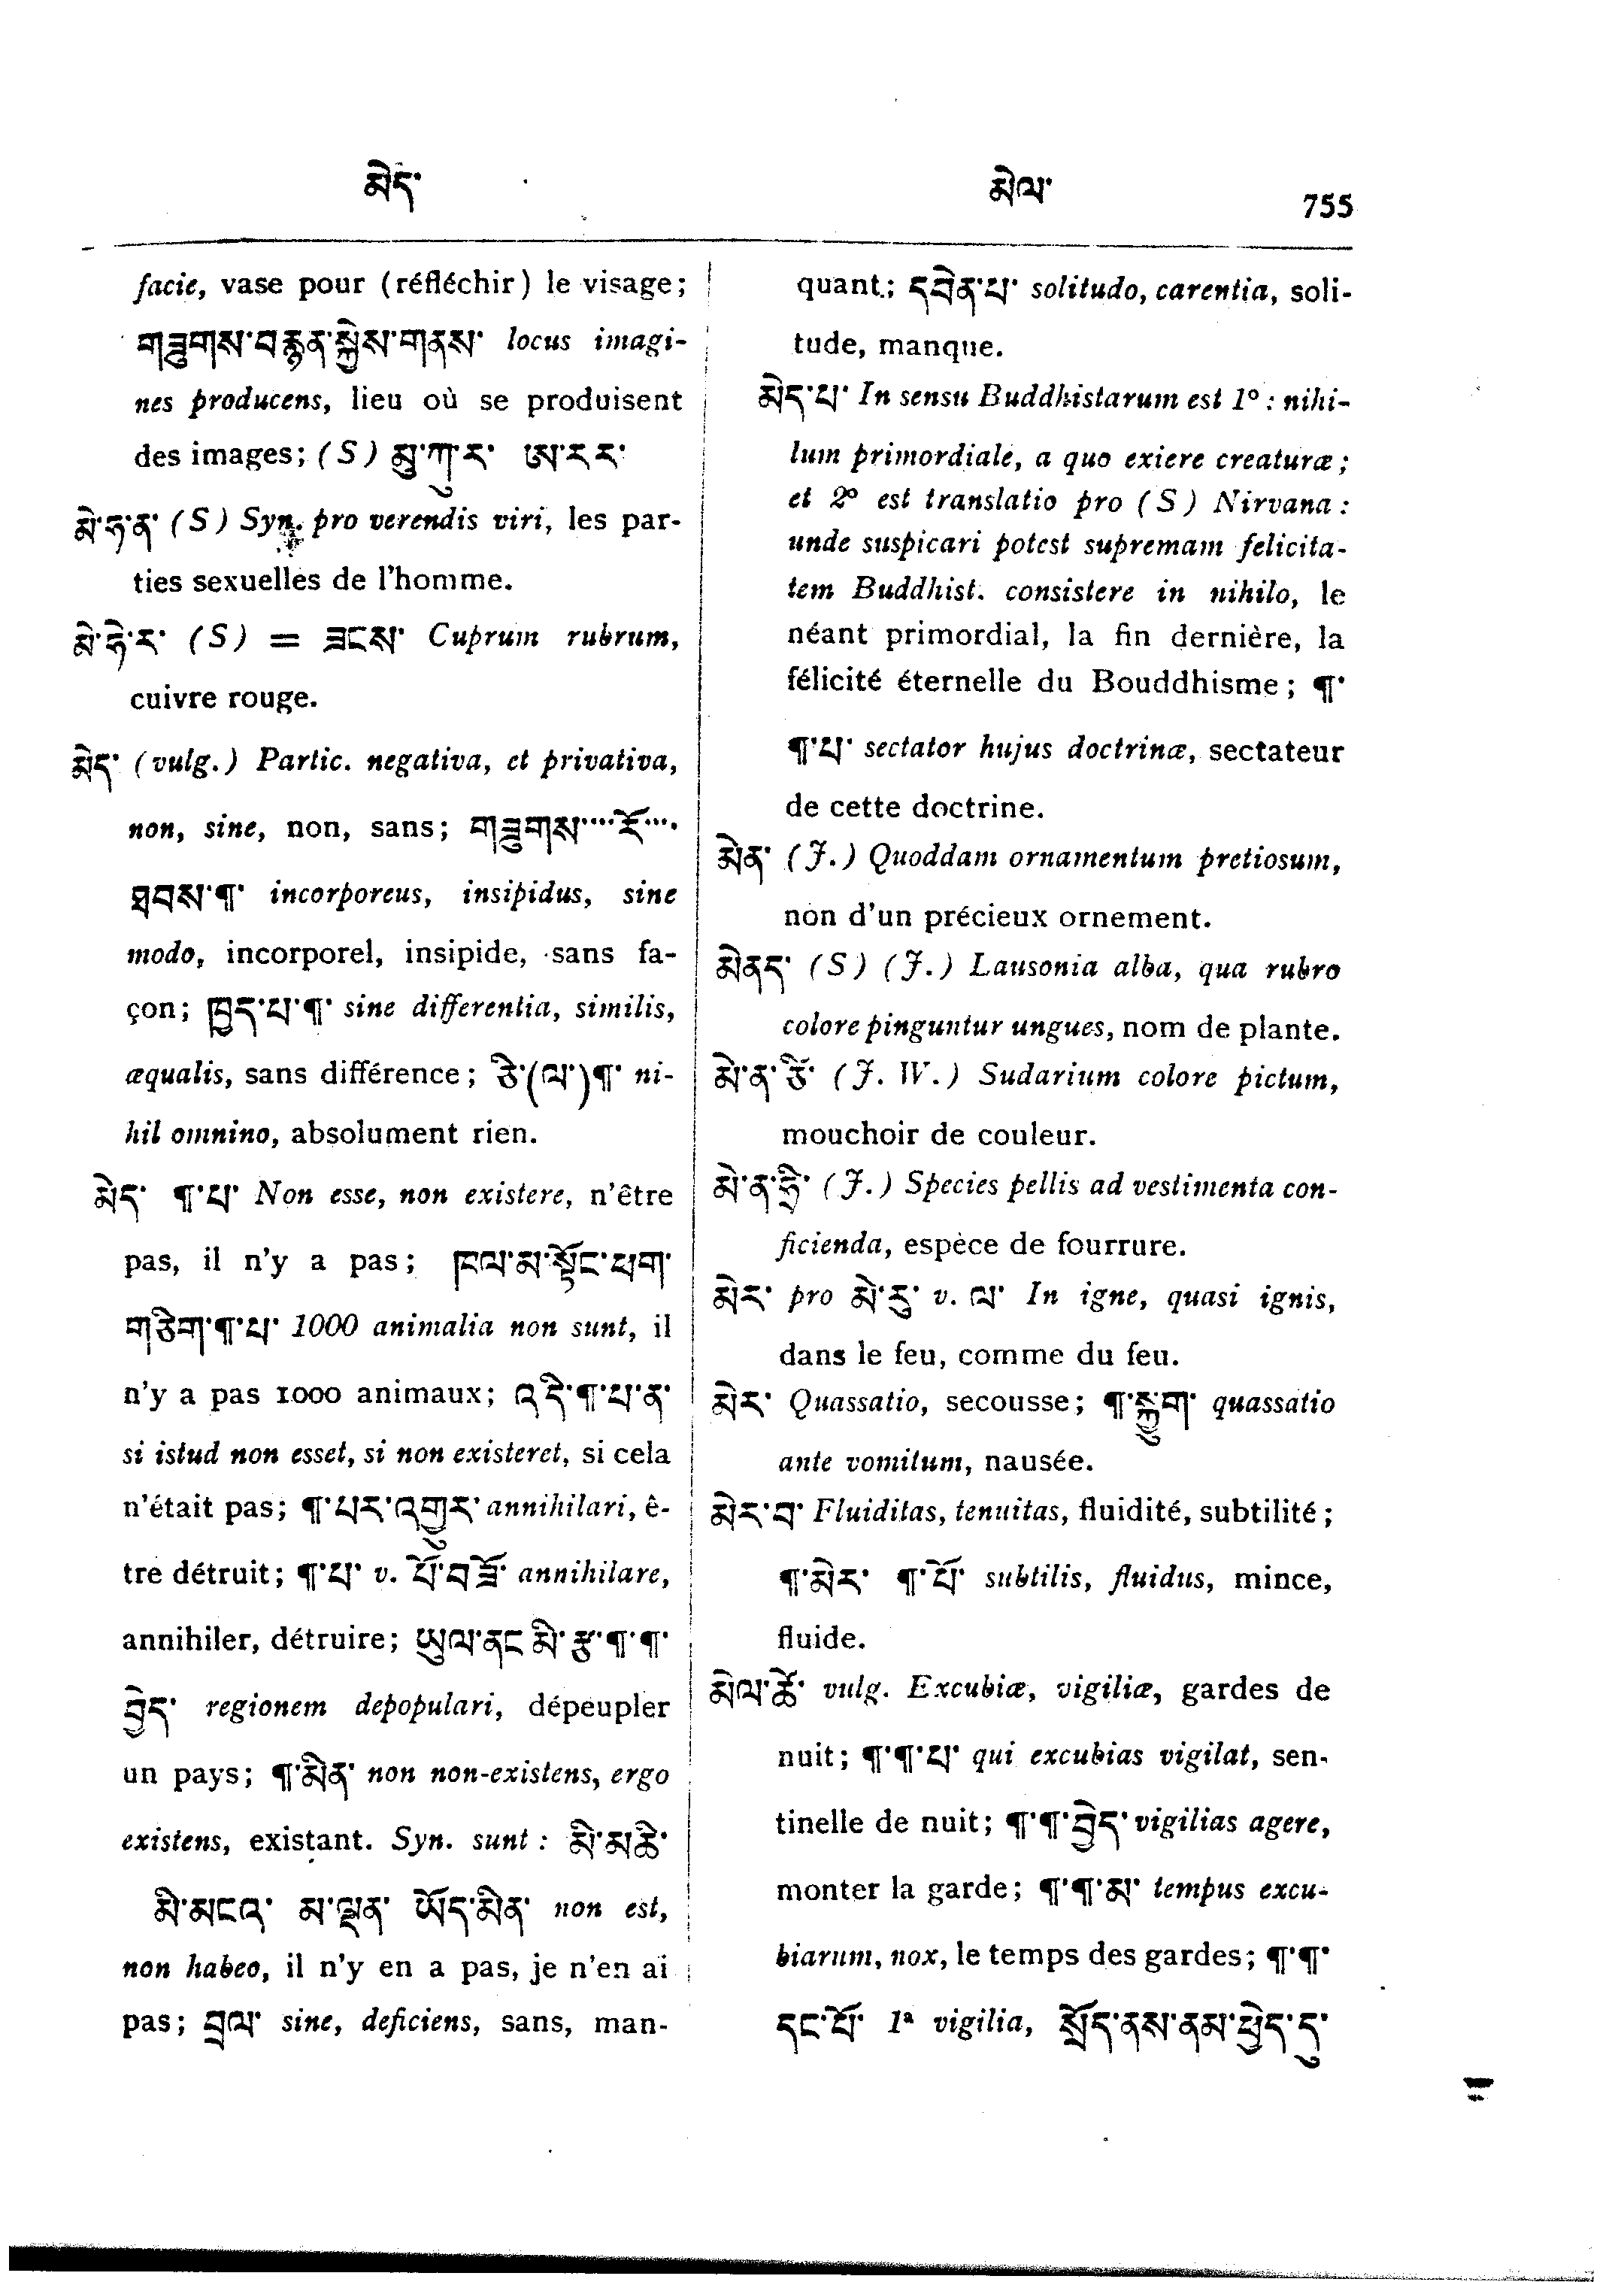 མེད་
མེལ་
755
facie, vase pour (réfléchir) le visage;
གཟུགས་བརྙན་སྐྱེས་གནས་ locus imagi-
nes producens, lieu où se produisent
des images; (S) མུ་ཀུ་ར་ ཨ་ར་ར་
མེ་ཧ་ན་ (S) Syn. pro verendis viri, les par-
ties sexuelles de l'homme.
མེ་ཧེ་ར་ (S) = ཟངས་ Cuprum rubrum,
cuivre rouge.
མེད་ (vulg.) Partic. negativa, et privativa,
non, sine, non, sans; གཟུགས་···རོ་···
ཐབས་¶་ incorporeus, insipidus, sine
modo, incorporel, insipide, sans fa-
çon; ཁྱད་པ་¶་ sine differentia, similis,
æqualis, sans différence; ཅེ་(ལ་)¶་ ni-
hil omnino, absolument rien.
མེད་ ¶་པ་ Non esse, non existere, n'être
pas, il n'y a pas; ཁལ་མ་སྟོང་ཕག་
གཅིག་¶་པ་ 1000 animalia non sunt, il
n'y a pas 1000 animaux; འདི་¶་པ་ན་
si istud non esset, si non existeret, si cela
n'était pas; ¶་པར་འགྱུར་ annihilari, ê-
tre détruit; ¶་པ་ v. པོ་བཟོ་ annihilare,
annihiler, détruire; ཡུལ་ནང མི་ རྩ་¶་¶་
བྱེད་ regionem depopulari, dépeupler
un pays; ¶་མིན་ non non-existens, ergo
existens, existant. Syn. sunt: མི་མཆི་
མི་མངའ་ མ་ལྡན་ ཡོད་མིན་ non est,
non habeo, il n'y en a pas, je n'en ai
pas; བྲལ་ sine, deficiens, sans, man-
quant; དབེན་པ་ solitudo, carentia, soli-
tude, manque.
མེད་པ་ In sensu Buddhistarum est 1º: nihi-
lum primordiale, a quo exiere creaturæ;
et 2º est translatio pro (S) Nirvana:
unde suspicari potest supremam felicita-
tem Buddhist. consistere in nihilo, le
néant primordial, la fin dernière, la
félicité éternelle du Bouddhisme; ¶་
¶་པ་ sectator hujus doctrinæ, sectateur
de cette doctrine.
མེན་ (J.) Quoddam ornamentum pretiosum,
non d'un précieux ornement.
མེནད་ (S) (J.) Lausonia alba, qua rubro
colore pinguntur ungues, nom de plante.
མེ་ན་ཙོ་ (J. W.) Sudarium colore pictum,
mouchoir de couleur.
མེ་ན་ཧྲི་ (J.) Species pellis ad vestimenta con-
ficienda, espèce de fourrure.
མེར་ pro མེ་རུ་ v. ལ་ In igne, quasi ignis,
dans le feu, comme du feu.
མེར་ Quassatio, secousse; ¶་སྐྱུག་ quassatio
ante vomitum, nausée.
མེར་བ་ Fluiditas, tenuitas, fluidité, subtilité;
¶་མེར་ ¶་པོ་ subtilis, fluidus, mince,
fluide.
མེལ་ཚེ་ vulg. Excubiæ, vigiliæ, gardes de
nuit; ¶་¶་པ་ qui excubias vigilat, sen-
tinelle de nuit; ¶་¶་བྱེད་ vigilias agere,
monter la garde; ¶་¶་མ་ tempus excu-
biarum, nox, le temps des gardes; ¶་¶་
དང་པོ་ 1ª vigilia, སྲོད་ནས་ནམ་ཕྱེད་དུ་